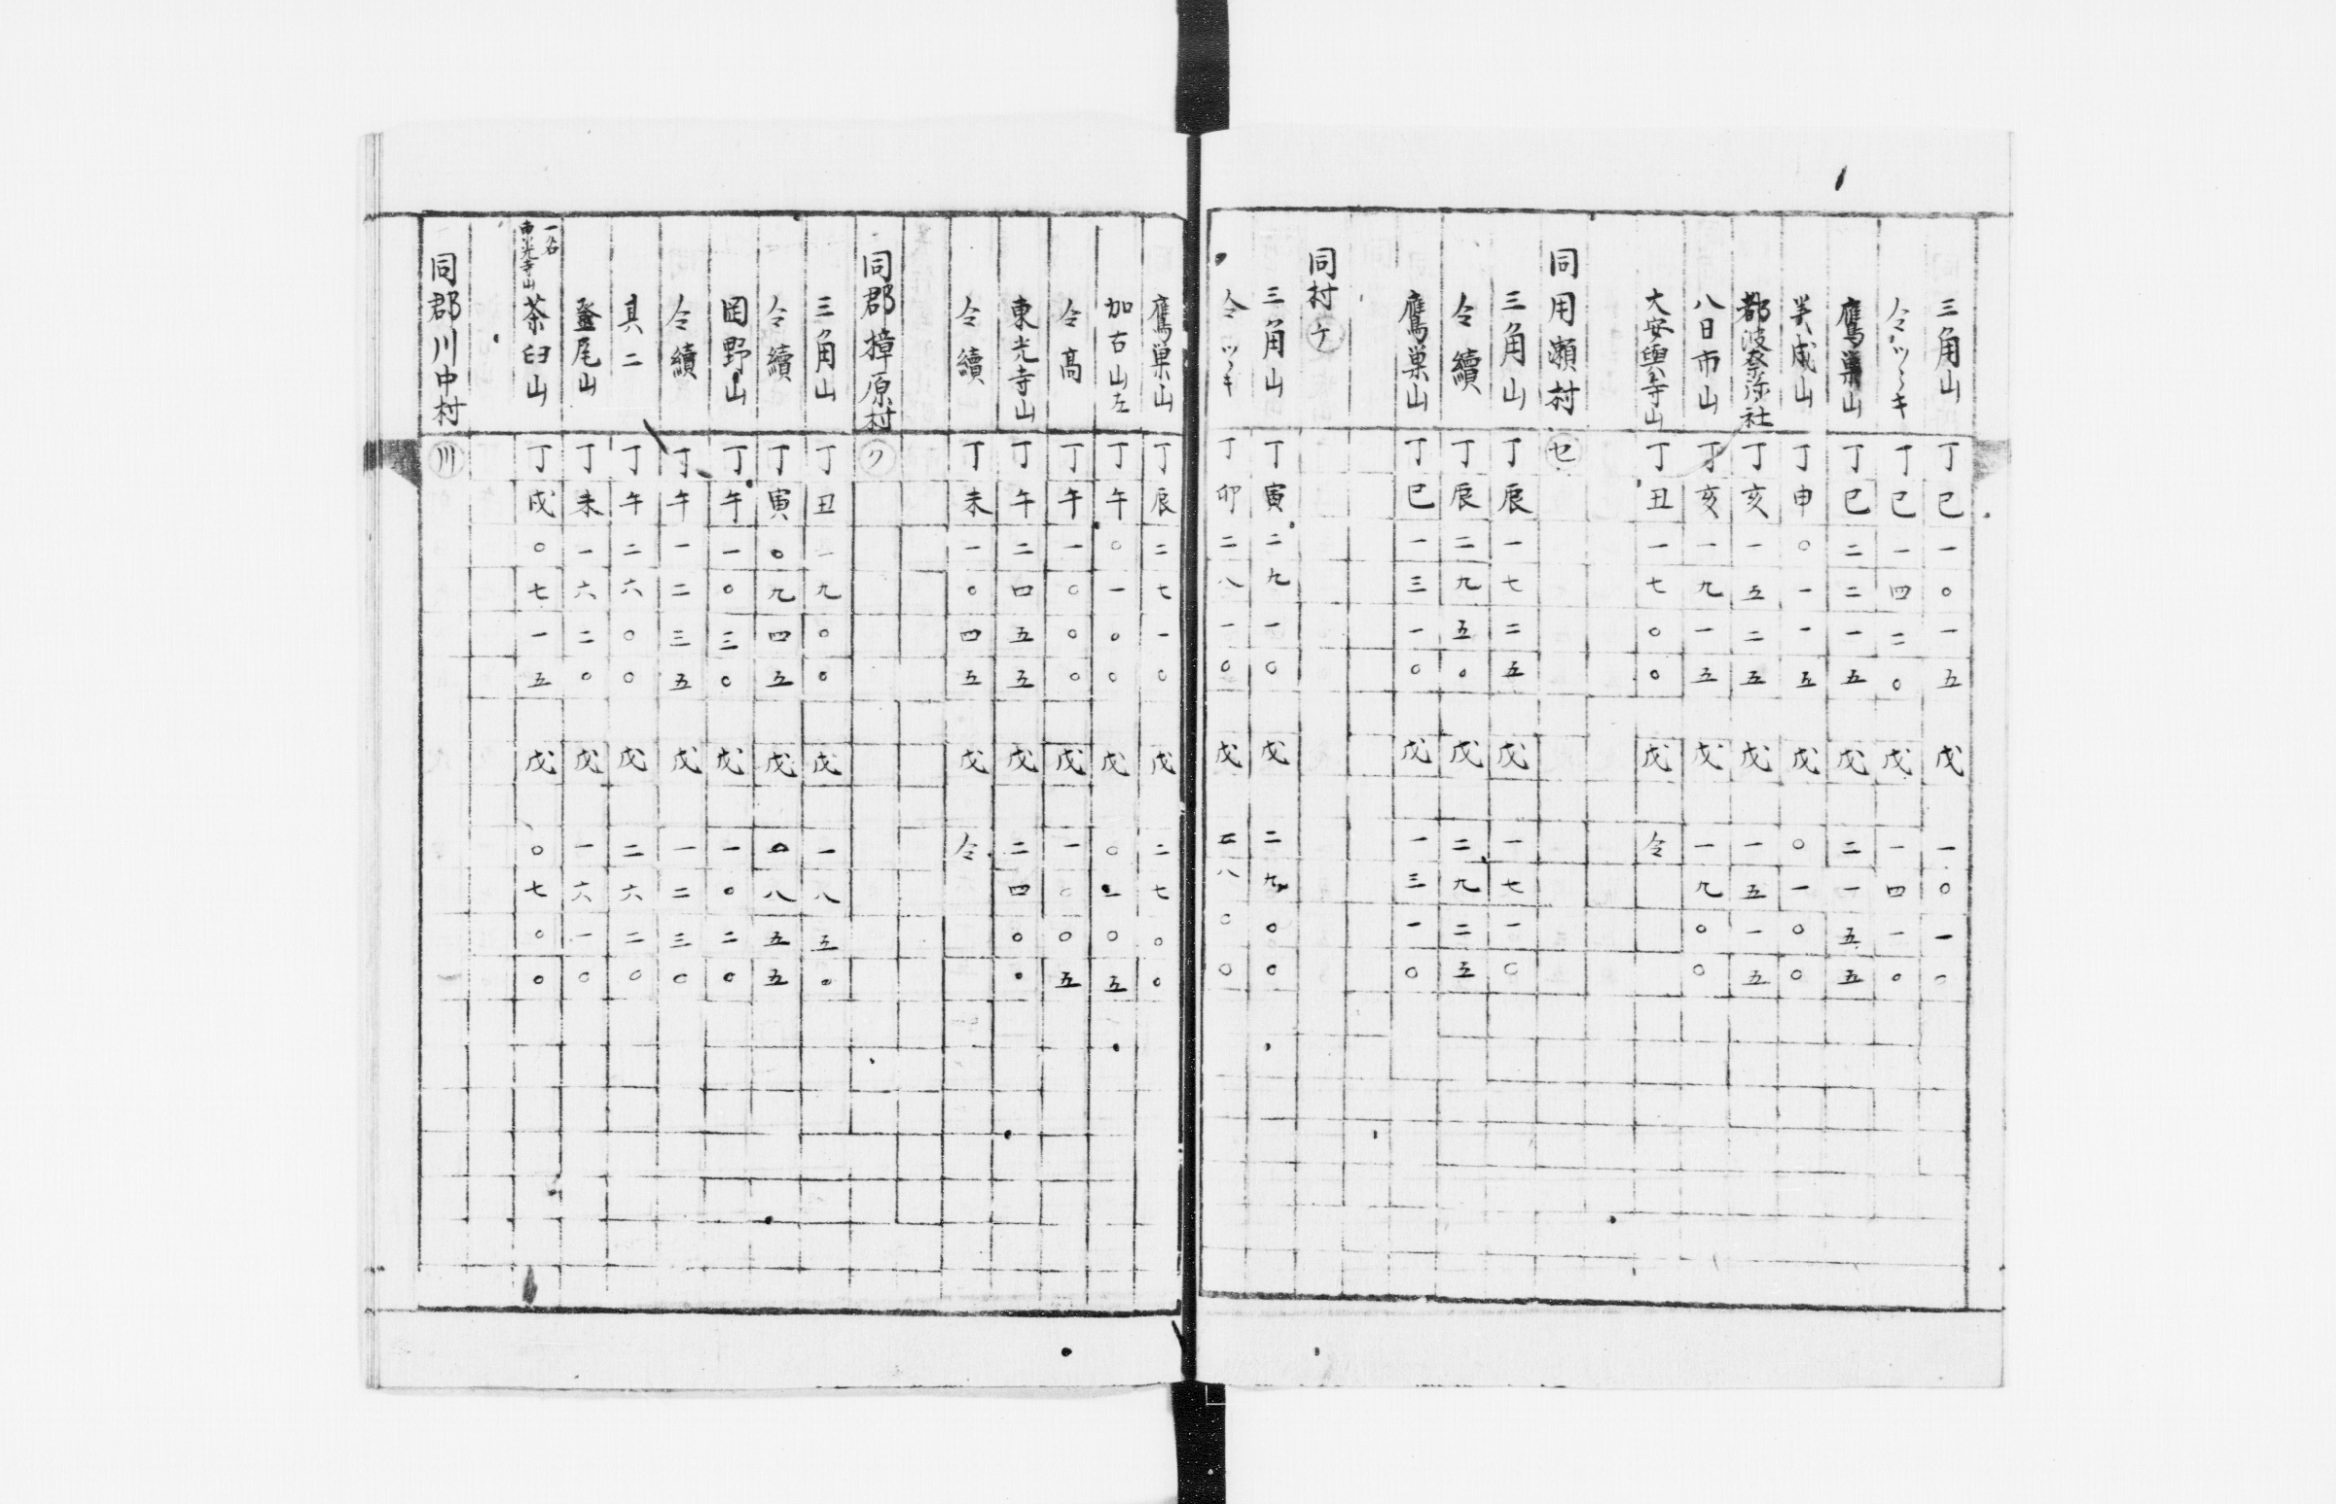 三角山 丁 巳 一〇一五 戊 一〇一〇
仝ツヽキ 丁 巳 一四二〇 戊 一四一〇
鷹巣山 丁 巳 二二一五 戊 二一五五
美成山 丁 申 〇一一五 戊 〇一〇〇
都波奈弥社 丁 亥 一五二五 戊 一五一五
八日市山 丁 亥 一九一五 戊 一九〇〇
大安興寺山 丁 丑 一七〇〇 戊 仝
同用瀬村 セ
三角山 丁 辰 一七二五 戊 一七一〇
仝續 丁 辰 二九五〇 戊 二九二五
鷹巣山 丁 巳 一三一〇 戊 一三一〇
同村 ケ
三角山 丁 寅 二九一〇 戊 二九〇〇
仝ツヽキ 丁 卯 二八一〇 戊 二八〇〇
鷹巣山 丁 辰 二七一〇 戊 二七〇〇
加古山左 丁 午 〇一〇〇 戊 〇一〇五
仝高 丁 午 一〇〇〇 戊 一〇〇五
東光寺山 丁 午 二四五五 戊 二四〇〇
仝續 丁 未 一〇四五 戊 仝
同郡樟原村 ク
三角山 丁 丑 一九〇〇 戊 一八五〇
仝續 丁 寅 〇九四五 戊 〇八五五
岡野山 丁 午 一〇三〇 戊 一〇二〇
仝續 丁 午 一二三五 戊 一二三〇
其二 丁 午 二六〇〇 戊 二六二〇
登尾山 丁 未 一六二〇 戊 一六一〇
一名
光寺山 茶臼山 丁 戌 〇七一五 戊 〇七〇〇
同郡川中村 川